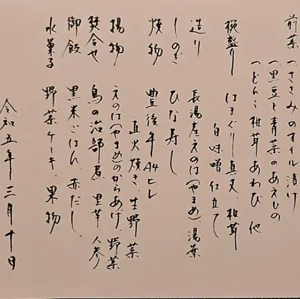 前菜 ささみのオイル漬
黒豆と青菜のあえもの
どんこ椎茸 あわび 他
椀盛り はまぐり真丈、椎茸
白味噌仕立て
造り 長湯産えのは(やまめ)、湯葉
しのぎ ひな寿し
焼物 豊後牛A4ヒレ
直火焼き、生野菜
揚物 えのは(やまめ)のからあげ、野菜
焚合せ 鳥の治部煮、里芋、人参
御飯 黒米ごはん、赤だし
水菓子 野菜ケーキ、果物
令和五年三月十日